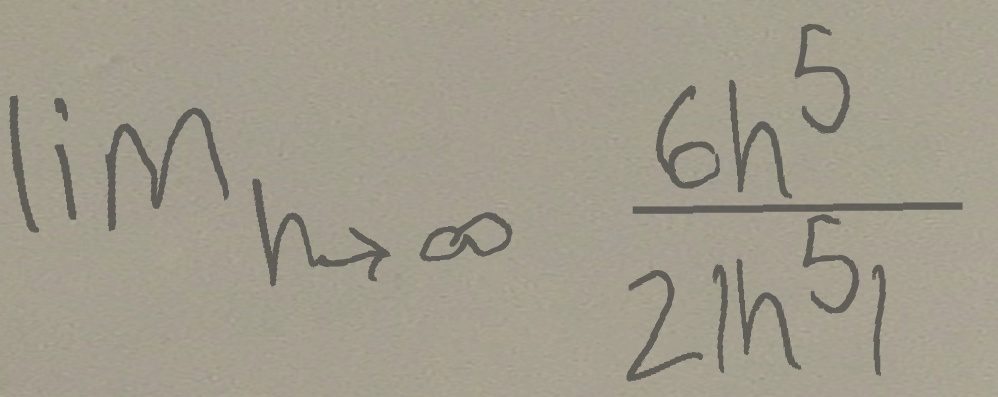 lim_{h→∞} \frac{6h^5}{2|h^5|}